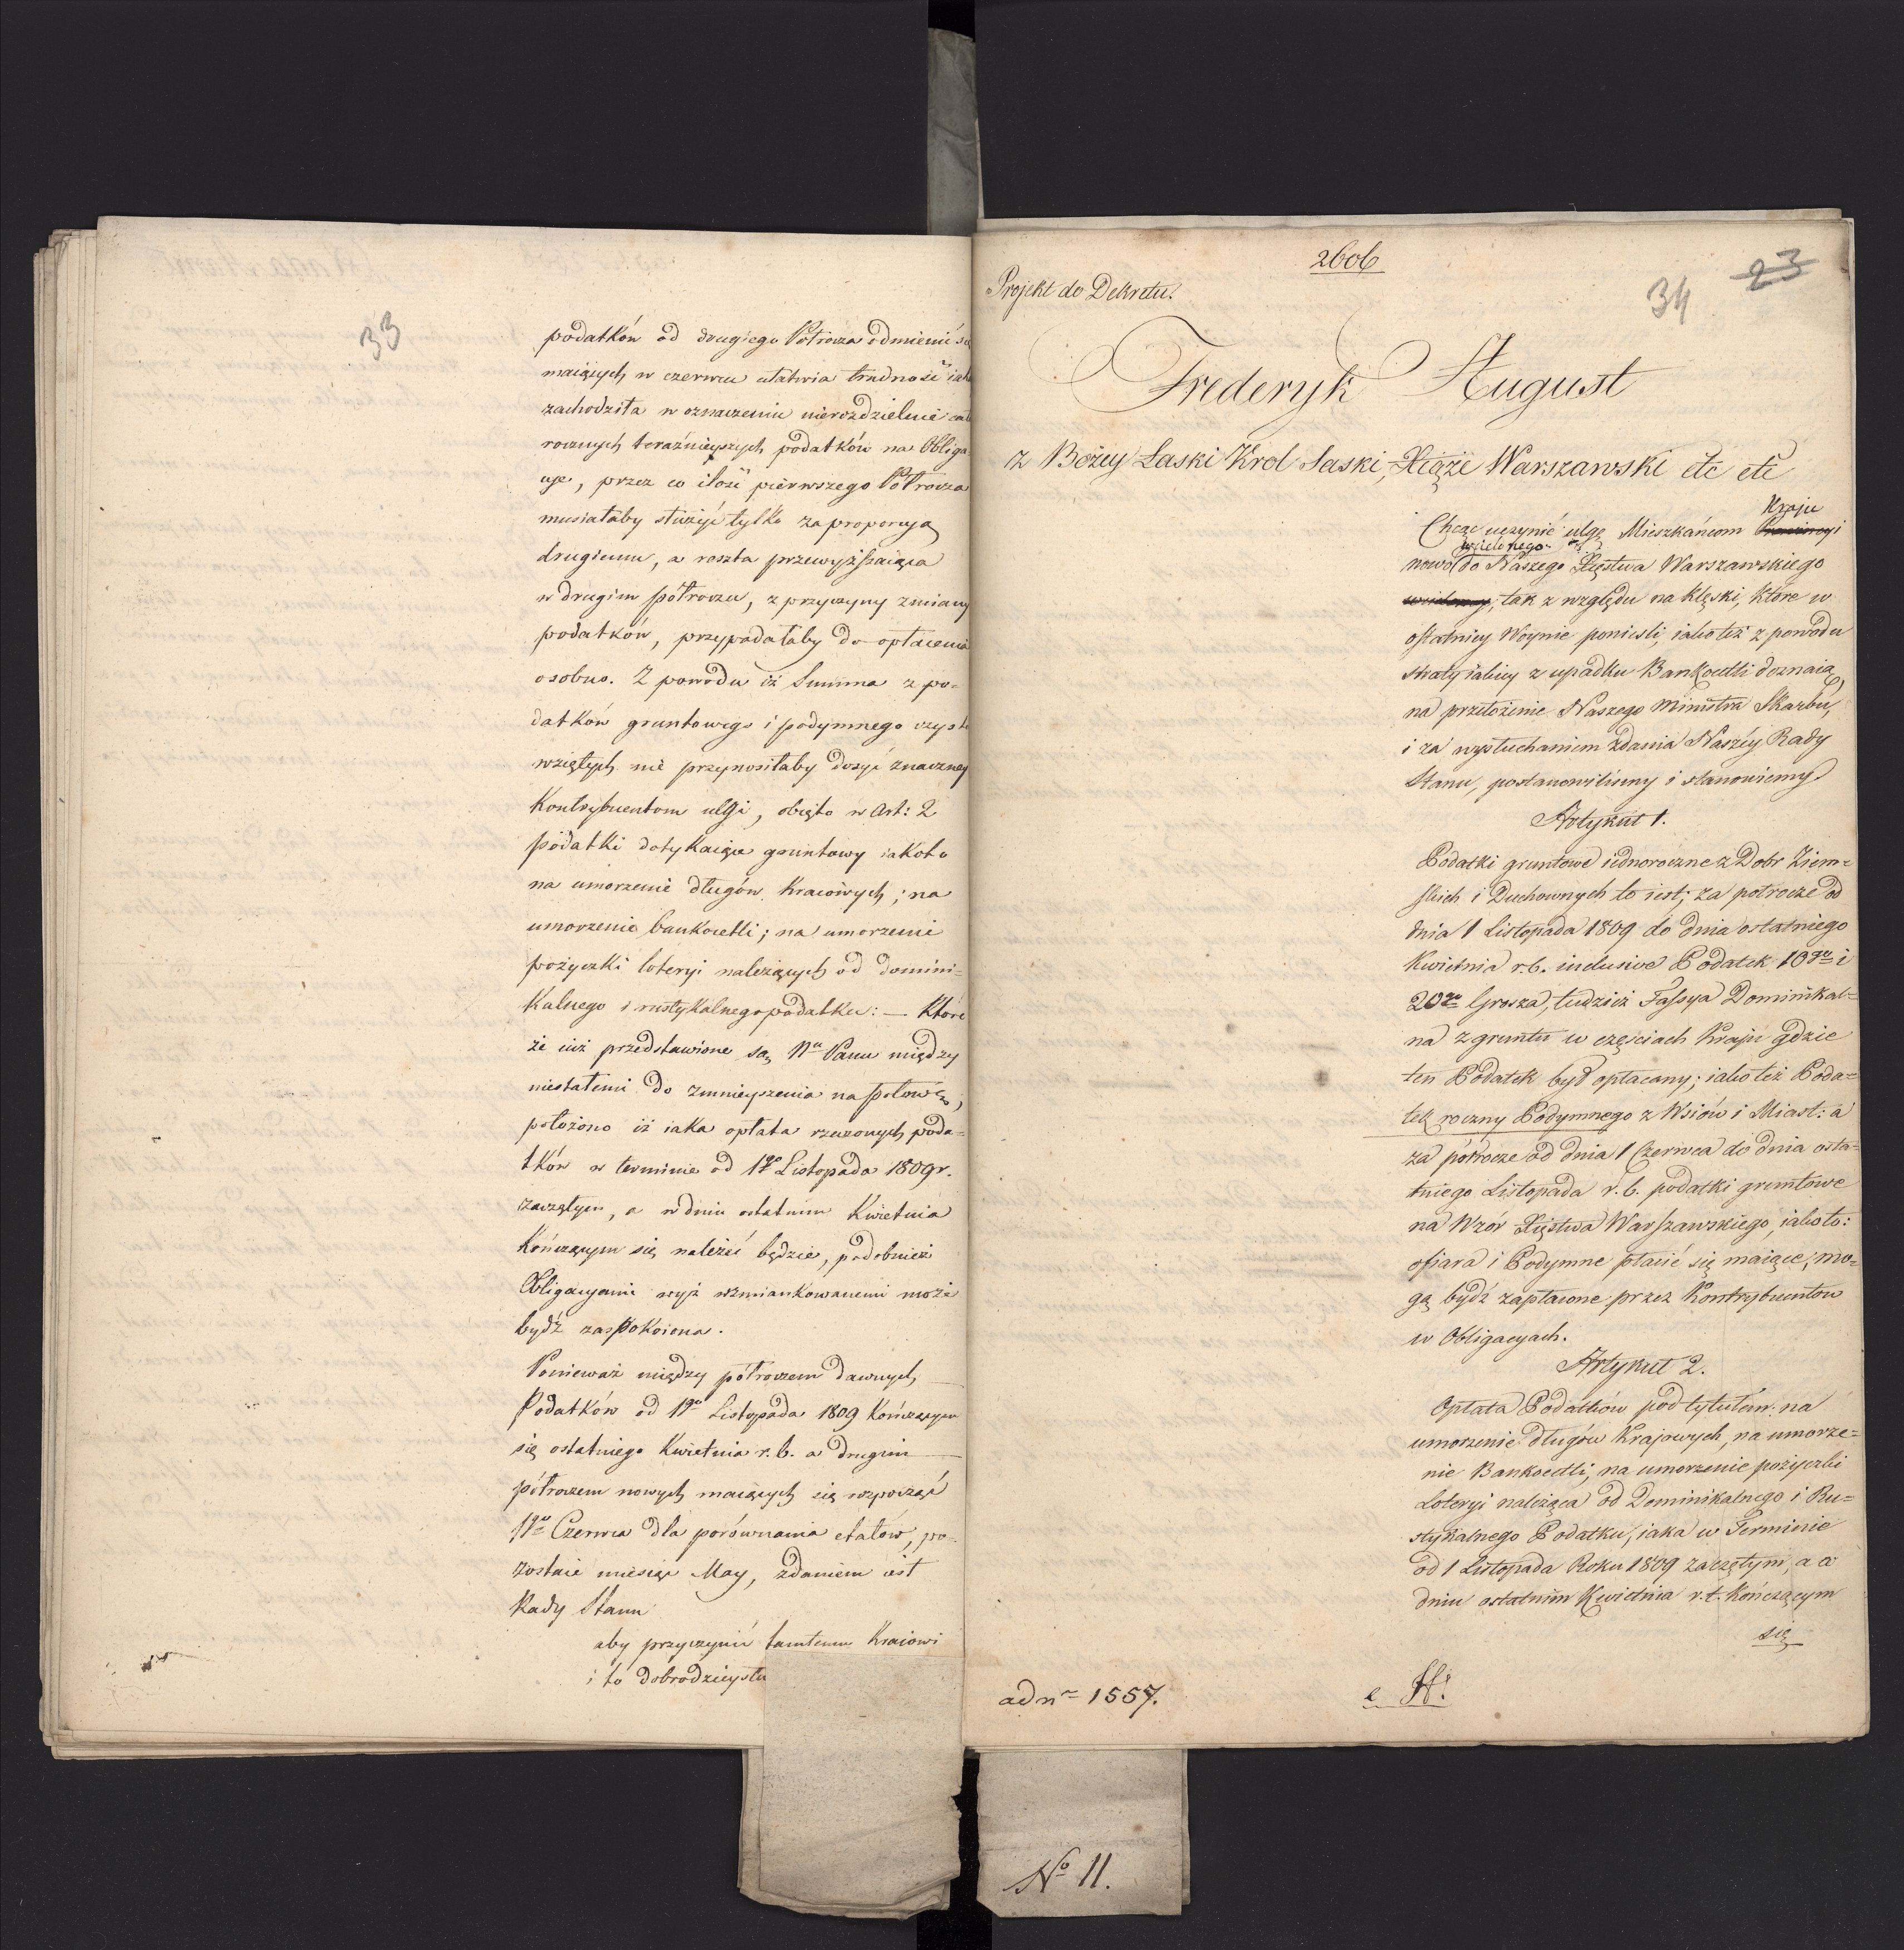 33
podatków od drugiego Półrocza odmienić się
maiących w czerwcu ułatwia trudność iaka
zachodziła w oznaczeniu nierozdzielnie cało
rocznych teraźnieyszych podatków na Obliga
cye, przez co ilość pierwszego Półrocza
musiałaby służyć tylko za proporcyą
drugiemu, a reszta przewyższaiąca
w drugim półroczu, z przyczyny zmiany
podatków, przypadałaby do opłacenia
osobno. Z powodu iż Summa z po-
datków gruntowego i podymnego czysto
wziętych nie przynosiłaby dosyć znaczney
Kontrybuentom ulgi, obięto w Art: 2
podatki dotykaiące gruntowy iakoto
na umorzenie długów Kraiowych; na
umorzenie bankocetli; na umorzenie
pożyczki loteryi należących od domini=
kalnego i rustykalnego podatku: — Które
że iuż przedstawione są Nu Panu między
niestałemi do zmnieyszenia na połowę,
położono iż iaka opłata rzeczonych poda=
tków w terminie od 1go Listopada 1809 r.
zaczętym, a w dniu ostatnim Kwietnia
kończącym się należeć będzie, podobnież
Obligacyami wyż wzmiankowanemi może
bydź zaspokoiona.
Ponieważ między półroczem dawnych
Podatków od 1go Listopada 1809 kończącym
się ostatniego Kwietnia r. b. a drugim
półroczem nowych maiących się rozpocząć
1go Czerwca dla porównania etatów, po-
zostaie miesiąc May, zdaniem iest
Rady Stanu
aby przyczynić tamtemu Kraiowi
i to dobrodzieystw
2606
Projekt do Dekretu.
34
23
Frederyk August
z Bożey Łaski Krol Saski, Xiąże Warszawski etc etc
Kraju
Chcąc uczynić ulgę Mieszkańcom
wcielonego
nowo do Naszego Xięstwa Warszawskiego
tak z względu na klęski, które w
ostatniey Woynie ponieśli, iako też z powodu
straty iakiey z upadku Bankocetli doznaią,
na przełożenie Naszego Ministra Skarbu,
i za wysłuchaniem zdania Naszéy Rady
Stanu, postanowiliśmy i stanowiemy
Artykuł 1.
Podatki gruntowe iednoroczne z Dobr Ziem=
skich i Duchownych to iest; za połrocze od
dnia 1 Listopada 1809 do dnia ostatniego
Kwietnia r. b. inclusive Podatek 10go i
20go Grosza, tudzież Fassya Dominikal=
na z gruntu w częściach Kraju gdzie
ten Podatek był opłacany; iako też Poda=
tek roczny Podymnego z Wsiów i Miast: a
za półrocze od dnia 1 Czerwca do dnia osta=
tniego Listopada r. b. podatki gruntowe
na Wzór Xięstwa Warszawskiego, iako to:
ofiara i Podymne płacić się maiące; mo=
gą bydź zapłacone przez Kontrybuentow
w Obligacyach.
Artykuł 2.
Opłata Podatków pod tytułem: na
umorzenie długów Krajowych, na umorze=
nie Bankocetli, na umorzenie pożyczki
Loteryi należąca od Dominikalnego i Ru=
stykalnego Podatku, iaka w Terminie
od 1 Listopada Roku 1809 zaczętym, a w
dniu ostatnim Kwietnia r. t. kończącym
się
ad nr 1557.
No 11.